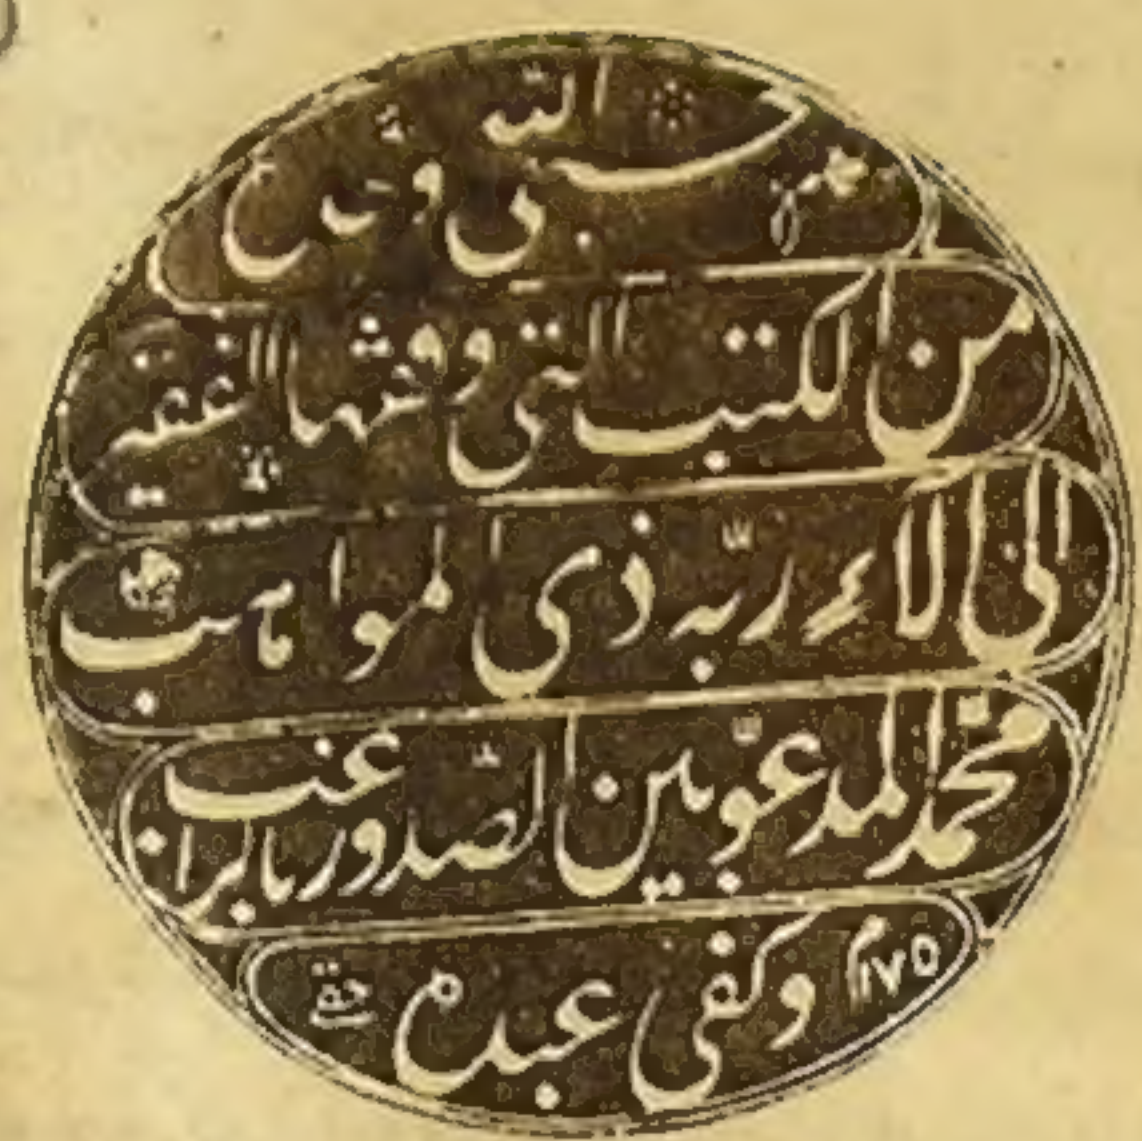 حسبى الله
من الكتب التى وقفها الفقير
الى آلاء ربّه ذى المواهب
محمد المدعوّ بين الصّدور بالراغب
١١٧٥ وكفى